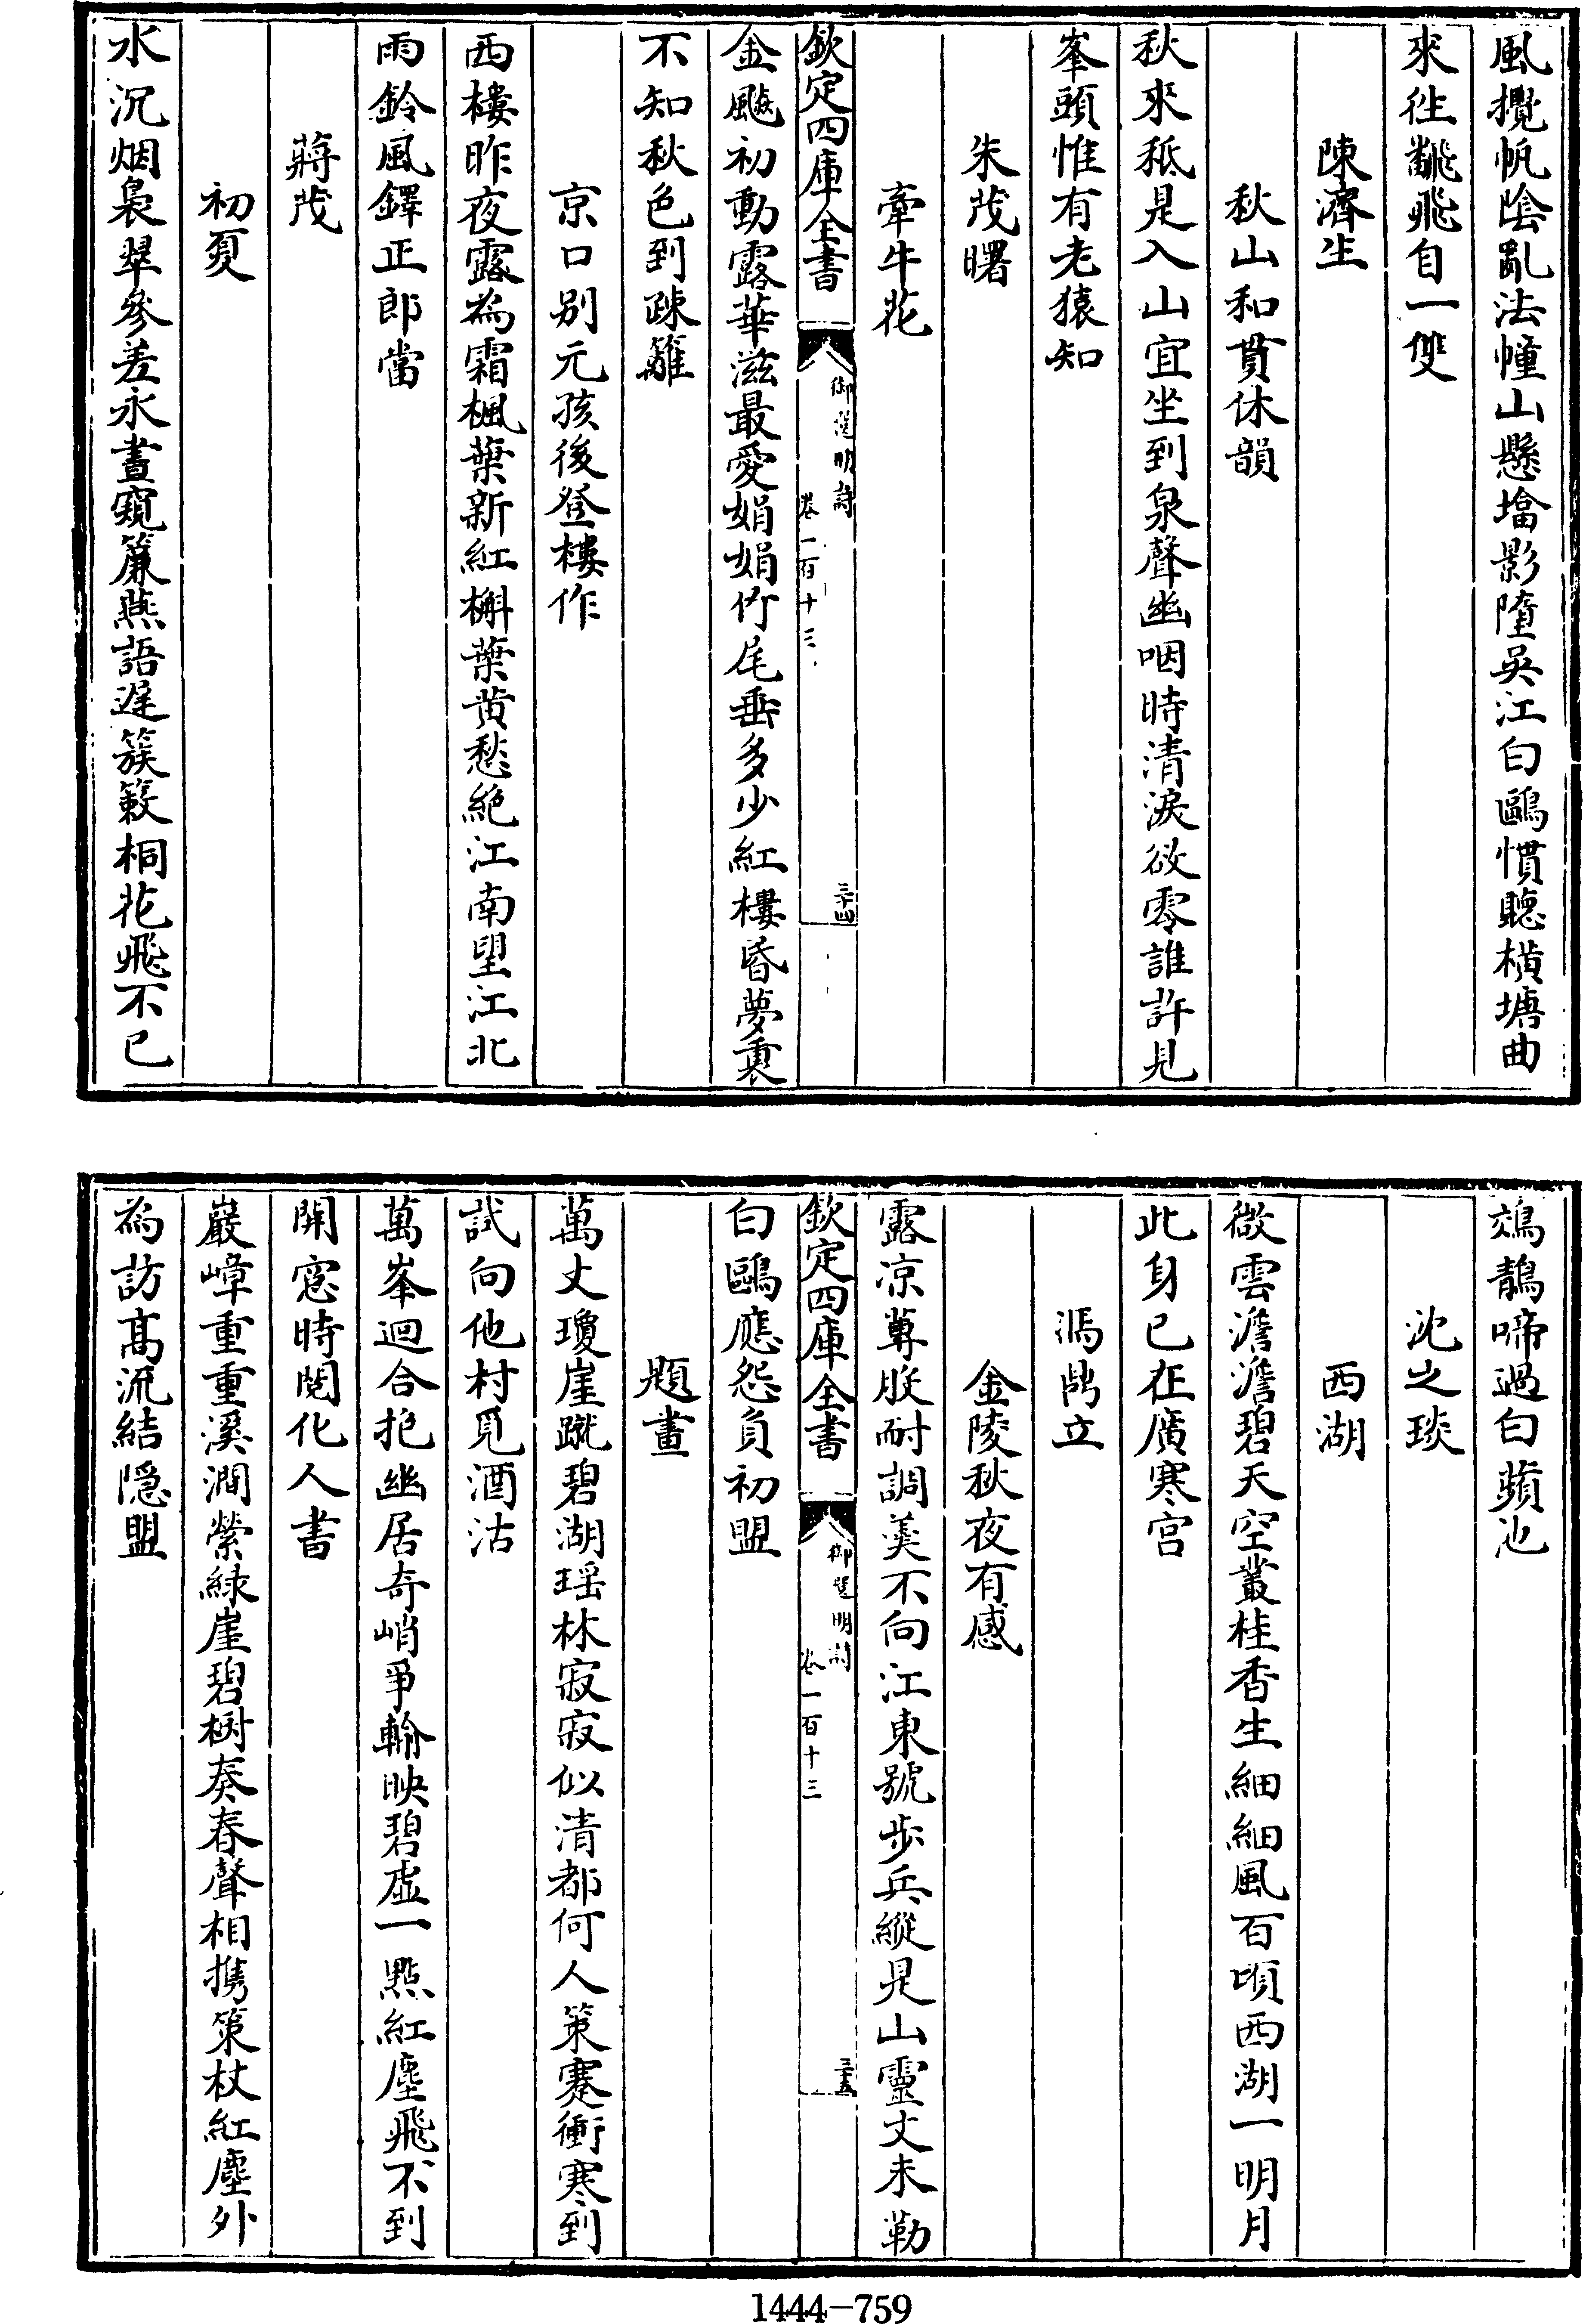 風攪帆陰亂法幢山懸塔影墮吳江白鷗慣聽橫塘曲
來往翻飛自一雙
陳濟生
秋山和貫休韻
秋來秪是入山宜坐到泉聲幽咽時清淚欲零誰許見
峯頭惟有老猿知
朱茂曙
牽牛花
欽定四庫全書
御選明詩
卷一百十三
三十四
金颷初動露華滋最愛娟娟竹尾垂多少紅樓昏夢裏
不知秋色到疎籬
京口别元孩後登樓作
西樓昨夜露為霜楓葉新紅槲葉黄愁絶江南望江北
雨鈴風鐸正郎當
蔣茂
初夏
水沉烟裊翠參差永晝窺簾燕語遲簇簌桐花飛不已
鵁鶄啼過白蘋池
沈之琰
西湖
微雲澹澹碧天空叢桂香生細細風百頃西湖一明月
此身已在廣寒宫
馮鼎立
金陵秋夜有感
露凉蓴股耐調羮不向江東號步兵縱是山靈文未勒
欽定四庫全書
御選明詩
卷一百十三
三十五
白鷗應怨負初盟
題畫
萬丈瓊崖蹴碧湖瑶林寂寂似清都何人策蹇衝寒到
試向他村覓酒沽
萬峯迴合抱幽居奇峭爭輸映碧虚一點紅塵飛不到
開窓時閲化人書
巖嶂重重溪澗縈緑崖碧樹奏春聲相携策杖紅塵外
為訪髙流結隠盟
1444-759